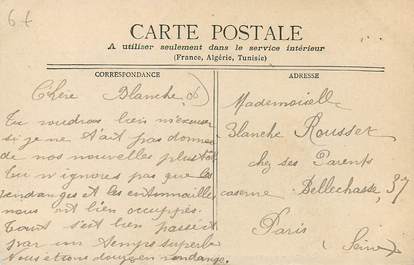 6f
CARTE POSTALE
A utiliser seulement dans le service intérieur
(France, Algérie, Tunisie)
CORRESPONDANCE
ADRESSE
Chère Blanche
Tu voudras bien m'excuser
si je ne t'ait pas donner
de nos nouvelles plus tôt
Tu n'ignores pas que les
vendanges et les entonnailles
nous ont bien occupés.
Tout s'est bien passé
par un temps superbe
Nous etions donc en vendange
Mademoiselle
Blanche Rousset
chez ses Parents
caserne Bellechasse, 37
Paris
(Seine)